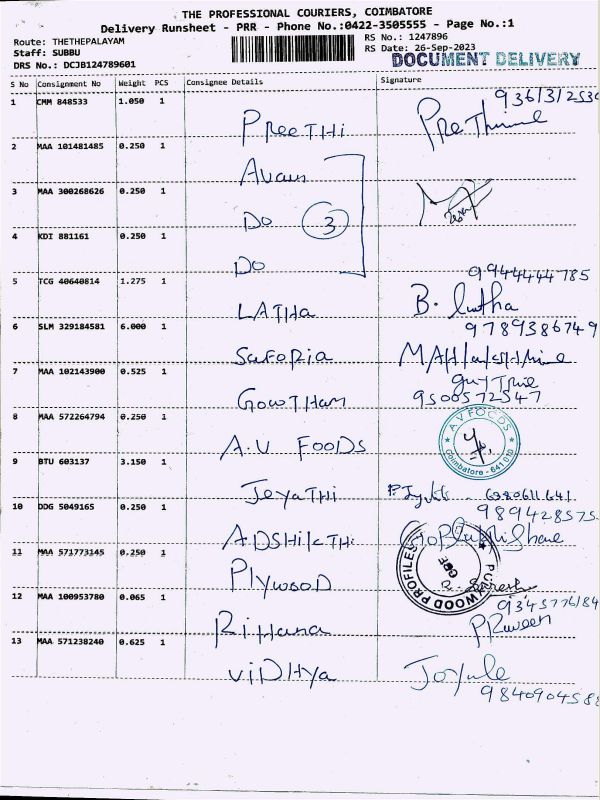 THE PROFESSIONAL COURIERS, COIMBATORE
Delivery Runsheet - PRR - Phone No.:0422-3505555 - Page No.:1
Route: THETHEPALAYAM
RS No.: 1247896
Staff: SUBBU
RS Date: 26-Sep-2023
DRS No.: DCJB124789601
DOCUMENT DELIVERY
S No Consignment No Weight PCS Consignee Details Signature
1 CMM 848533 1.050 1
PreeTHi
2 MAA 101481485 0.250 1
3 MAA 300268626 0.250 1
Do 3
4 KDI 881161 0.250 1
Do
5 TCG 40640814 1.275 1
9944444785
LATHa B. Latha
6 SLM 329184581 6.000 1
9789386749
7 MAA 102143900 0.525 1
GowTHam 9500572547
8 MAA 572264794 0.250 1
A.V FOODS
A V FOODS
Coimbatore - 641 010
9 BTU 603137 3.150 1
JeyaTHi
10 DDG 5049165 0.250 1
989428575
11 MAA 571773145 0.250 1
Plywood
PLYWOOD PROFILES
CBE
12 MAA 100953780 0.065 1
Rihana PRaveen
13 MAA 571238240 0.625 1
viDHya